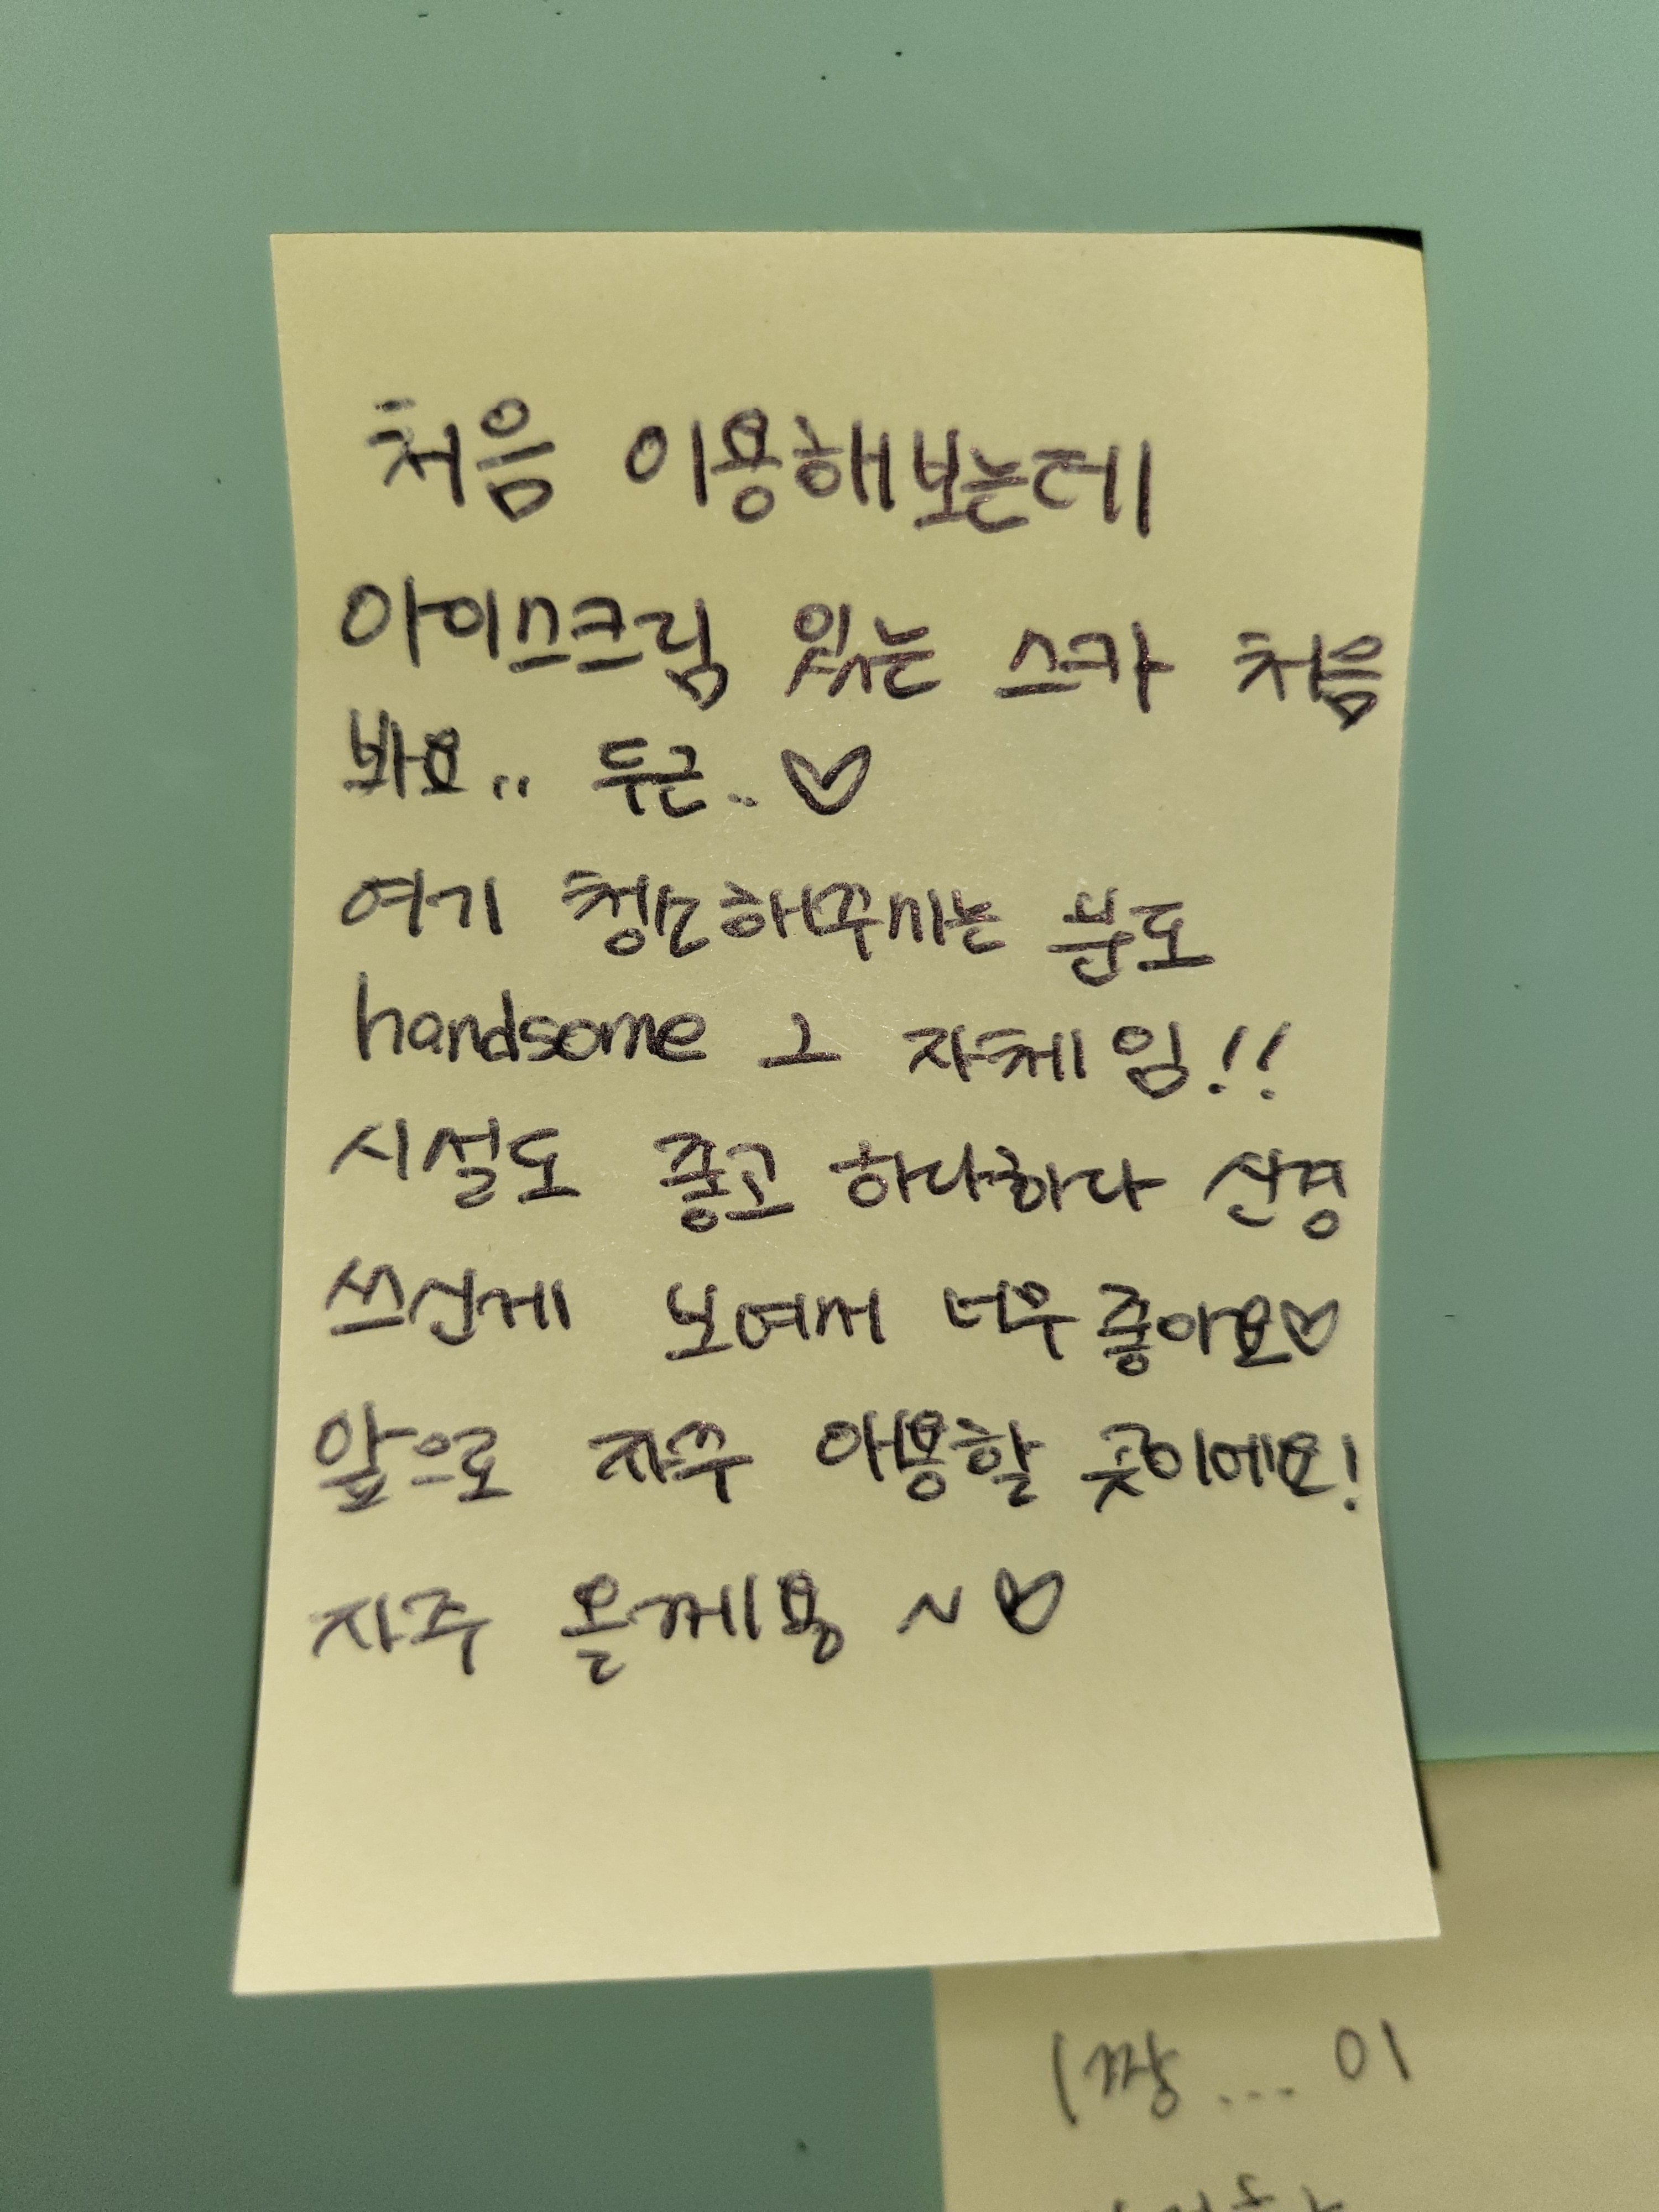 처음 이용해보는데
아이스크림 있는 스카 처음
봐요.. 두근..♡
여기 청소해주시는 분도
handsome 그 자체임!!
시설도 좋고 하나하나 신경
쓰신게 보여서 너무 좋아요♡
앞으로 자주 애용할 곳이에요!
자주 올께용 ~♡
(짱... 이